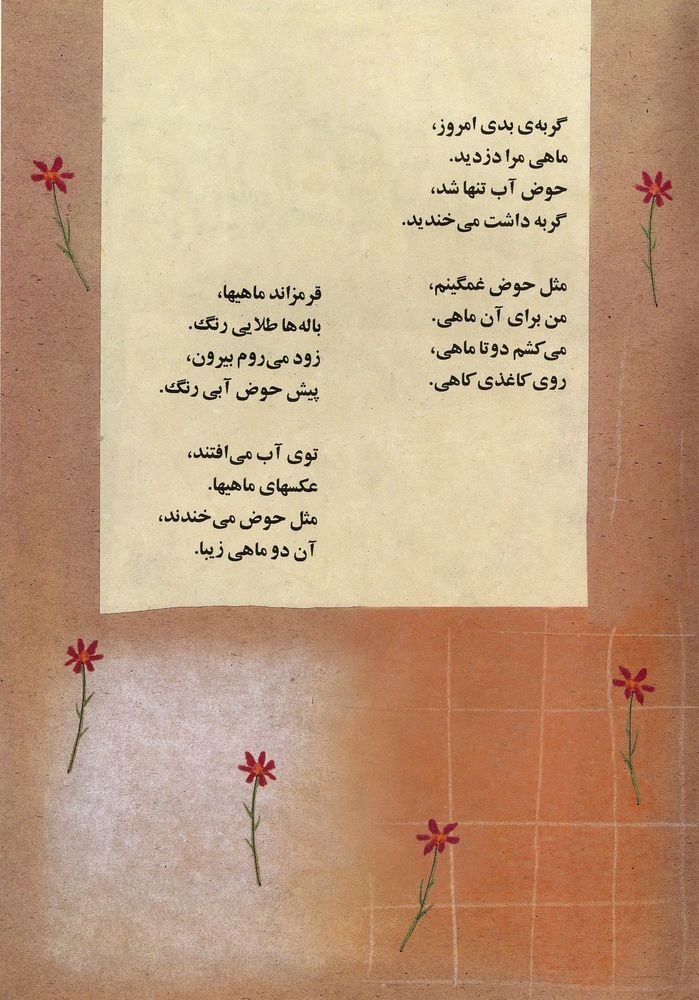 گربه‌ی بدی امروز،
ماهی مرا دزدید.
حوض آب تنها شد،
گربه داشت می‌خندید.
مثل حوض غمگینم،
من برای آن ماهی.
می‌کشم دوتا ماهی،
روی کاغذی کاهی.
قرمزاند ماهیها،
باله‌ها طلایی رنگ.
زود می‌روم بیرون،
پیش حوض آبی رنگ.
توی آب می‌افتند،
عکسهای ماهیها.
مثل حوض می‌خندند،
آن دو ماهی زیبا.